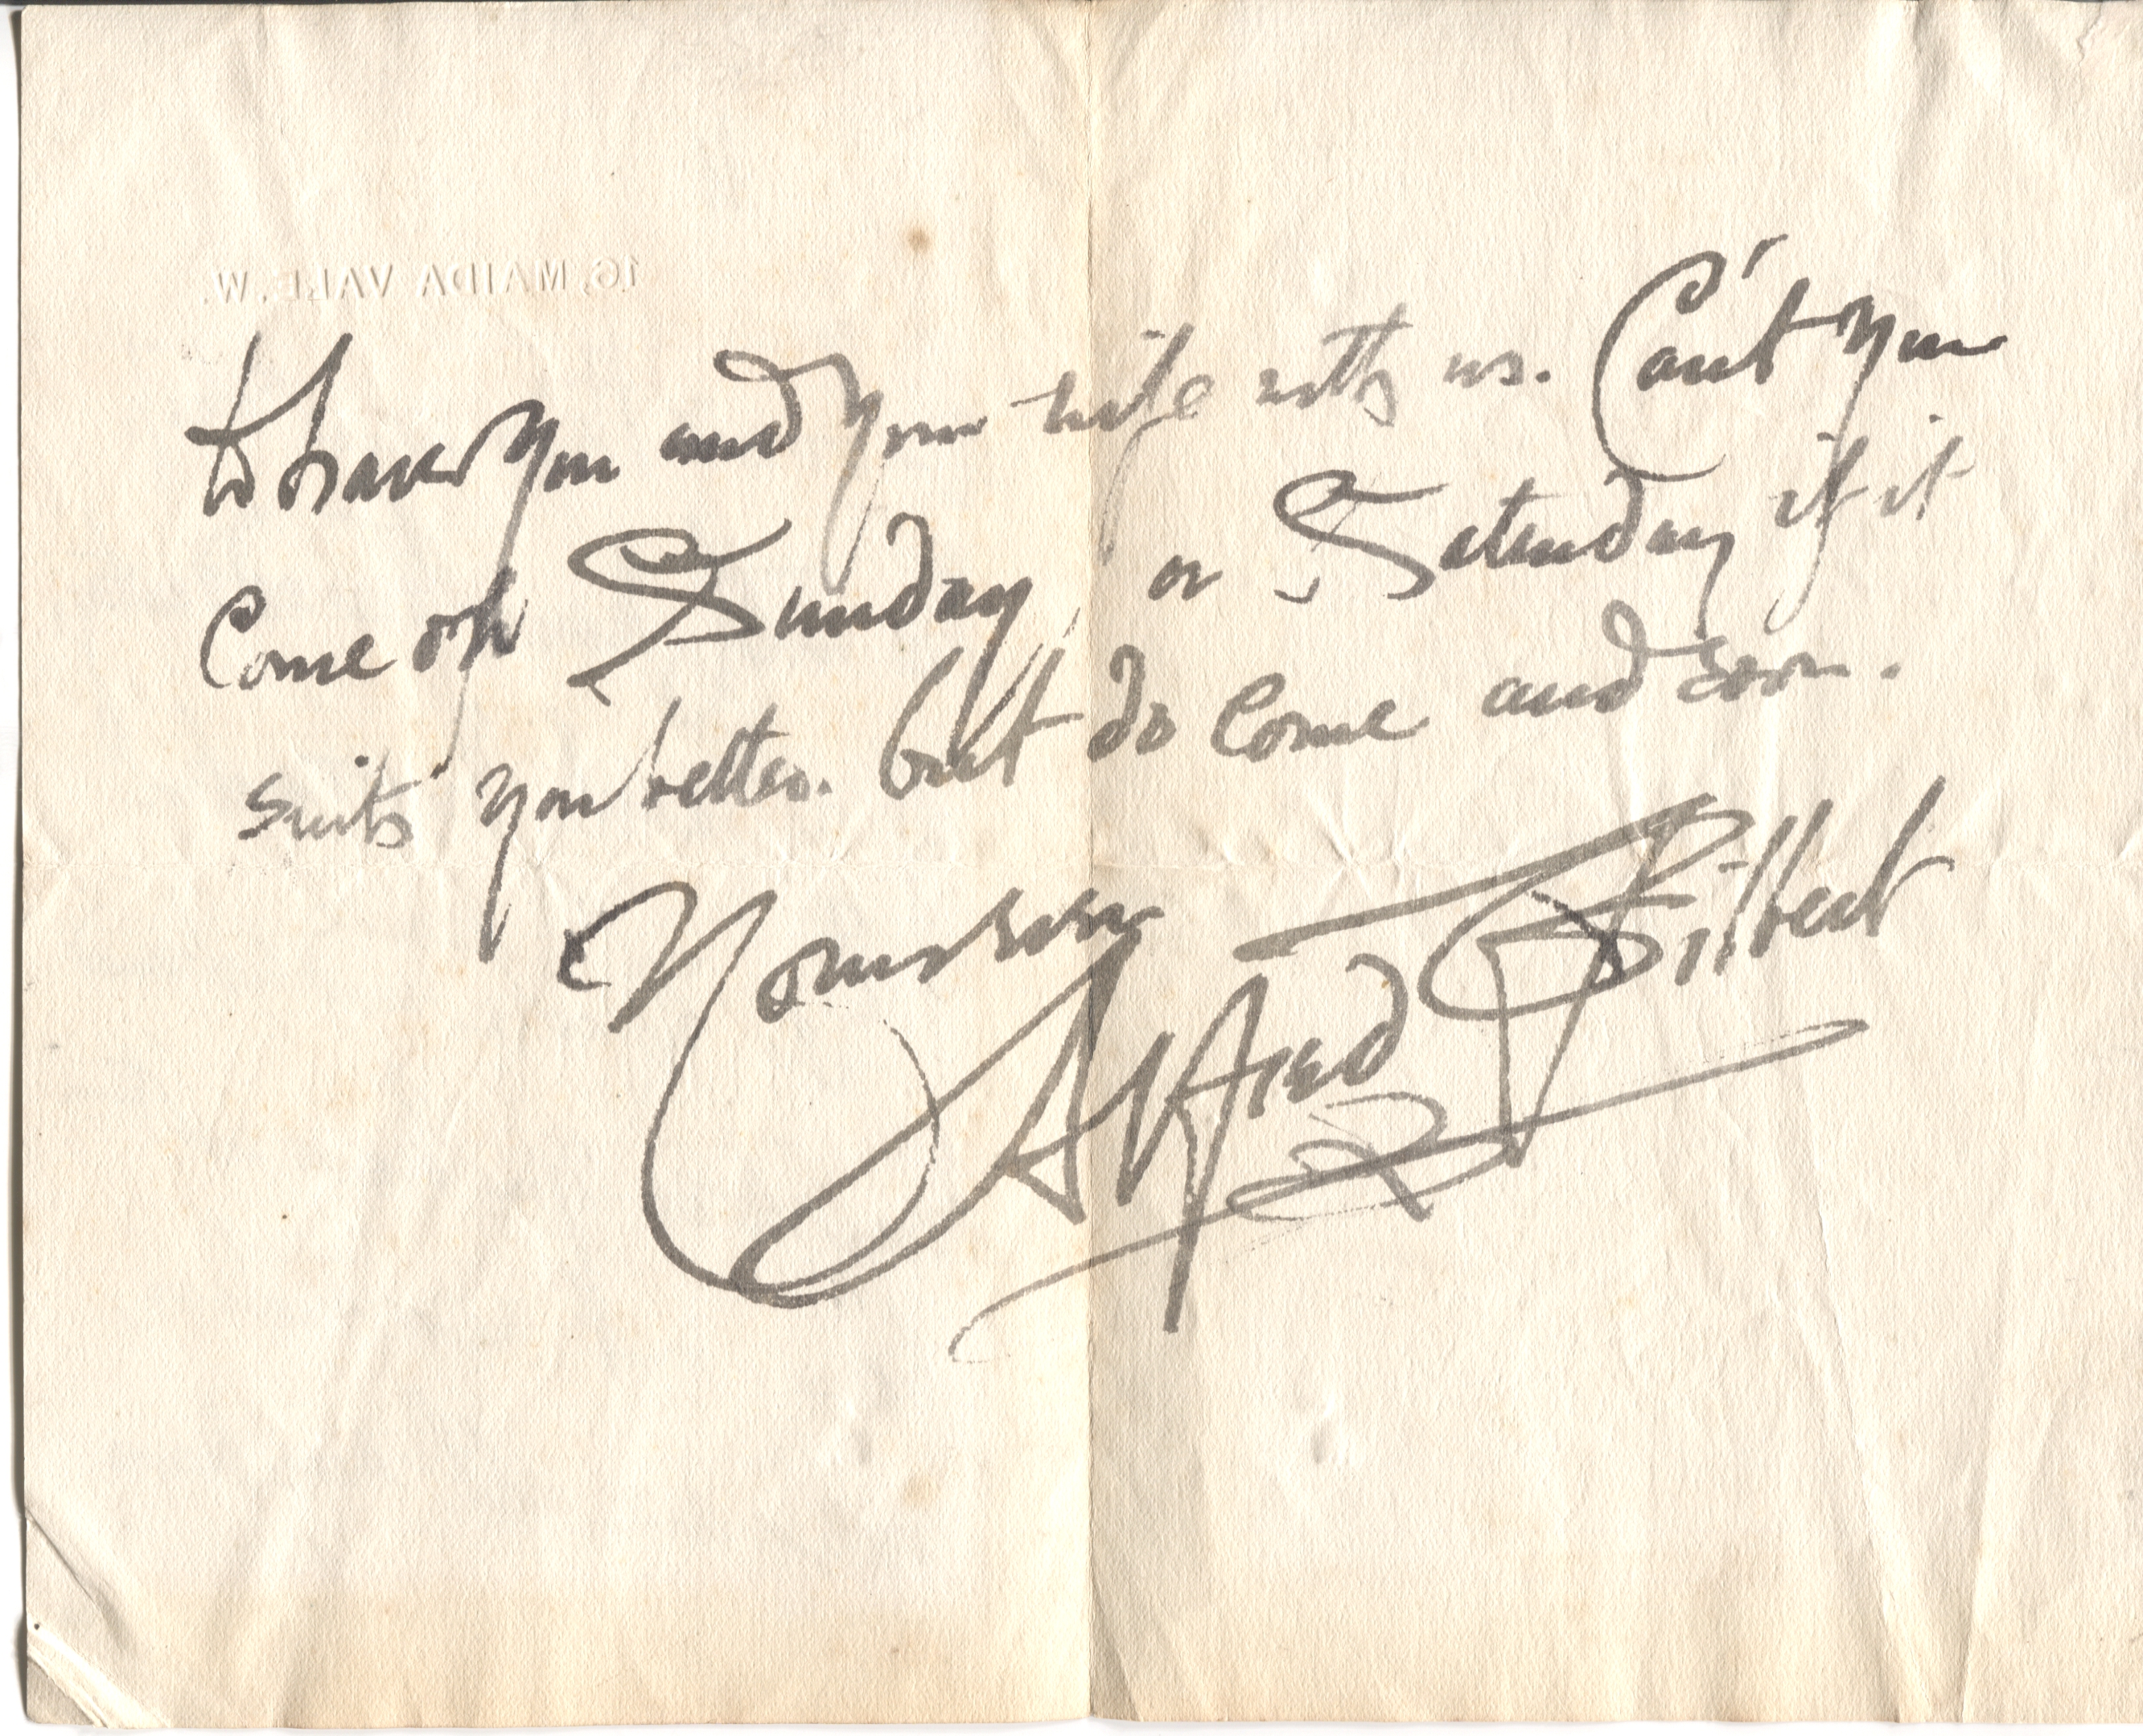 16, MAIDA VALE. W.
to have you and your wife with us. Can't you
Come on Sunday, or Saturday if it
suits you better. but do come and soon.
Yours ever
Alfred Gilbert